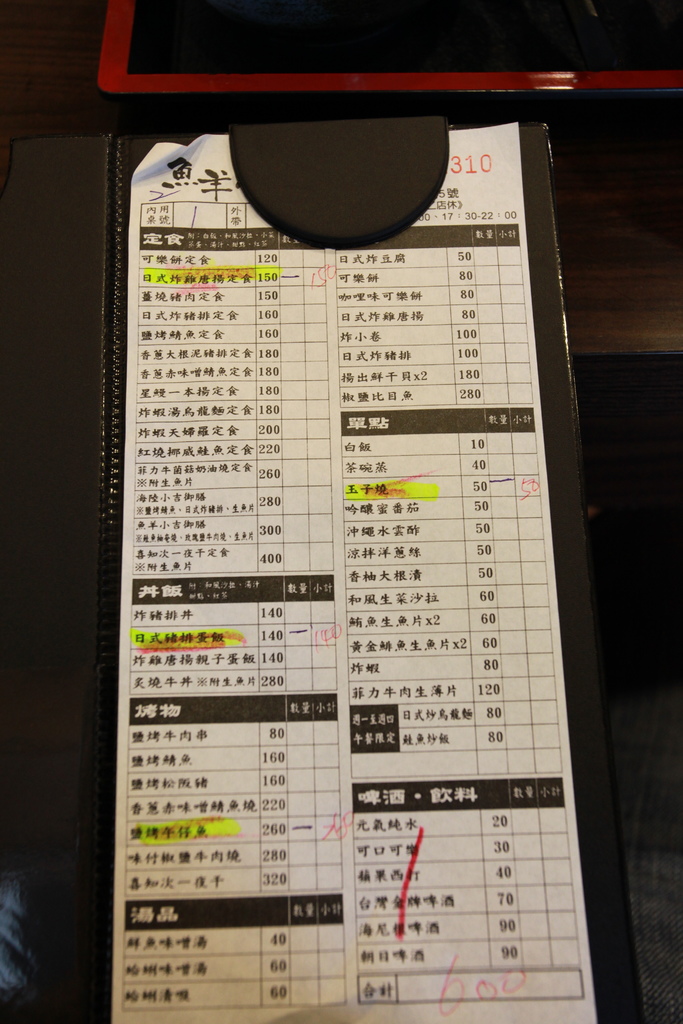 魚羊
310
5號
二店休》
00、17:30-22:00
2
內用桌號 1 外帶
定食 附:白飯、和風沙拉、小菜 茶蒸、湯汁、甜點、紅茶 數量 小計
可樂餅定食 120
日式炸雞唐揚定食 150 一 150
薑燒豬肉定食 150
日式炸豬排定食 160
鹽烤鯖魚定食 160
香蔥大根泥豬排定食 180
香蔥赤味噌鯖魚定食 180
星鰻一本揚定食 180
炸蝦湯烏龍麵定食 180
炸蝦天婦羅定食 200
紅燒挪威鮭魚定食 220
菲力牛菌菇奶油燒定食 260
※附生魚片
海陸小吉御膳 280
※鹽烤鯖魚、日式炸豬排、生魚片
魚羊小吉御膳 300
喜知次一夜干定食 400
※附生魚片
丼飯 附:和風沙拉、湯汁 甜點、紅茶 數量 小計
炸豬排丼 140
日式豬排蛋飯 140 一 140
炸雞唐揚親子蛋飯 140
炙燒牛丼※附生魚片 280
烤物 數量 小計
鹽烤牛肉串 80
鹽烤鯖魚 160
鹽烤松阪豬 160
香蔥赤味噌鯖魚燒 220
鹽烤午仔魚 260 一 260
味付椒鹽牛肉燒 280
喜知次一夜干 320
湯品 數量 小計
鮮魚味噌湯 40
蛤蜊味噌湯 60
蛤蜊清湯 60
數量 小計
日式炸豆腐 50
可樂餅 80
咖哩味可樂餅 80
日式炸雞唐揚 80
炸小卷 100
日式炸豬排 100
揚出鮮干貝x2 180
椒鹽比目魚 280
單點 數量 小計
白飯 10
茶碗蒸 40
玉子燒 50 一 50
吟釀蜜番茄 50
沖繩水雲酢 50
涼拌洋蔥絲 50
香柚大根漬 50
和風生菜沙拉 60
鮪魚生魚片x2 60
黃金鯡魚生魚片x2 60
炸蝦 80
菲力牛肉生薄片 120
週一至週四 午餐限定
日式炒烏龍麵 80
鮭魚炒飯 80
啤酒・飲料 數量 小計
元氣純水 20
可口可樂 30
蘋果西打 40
台灣金牌啤酒 70
海尼根啤酒 90
朝日啤酒 90
合計 600